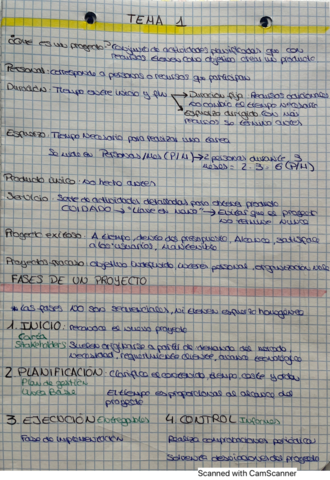 TEMA 1
¿QUÉ ES un proyecto? Conjunto de actividades planificadas que con
recursos tienen como objetivo crear un producto
Personal: corresponde a personas o recursos que participan
Duración: Tiempo entre inicio y fin → Duración fija: Recursos adicionales
no cambia el tiempo necesario
Esfuerzo dirigido: con más
recursos se termina antes
Esfuerzo: Tiempo necesario para realizar una tarea
Se mide en Personas/Mes (P/M) → 2 personas durante 3
meses = 2·3 = 6 (P/M)
Producto único: No hecho antes
Servicio: Serie de actividades detalladas para obtener producto
CUIDADO → "Llave en mano" → Evitar que el proyecto
no termine nunca
Proyecto exitoso: A tiempo, dentro del presupuesto, Alcance, satisface
a los usuarios, Mantenible
Proyecto fracaso: objetivo
FASES DE UN PROYECTO
* Las fases NO son secuenciales, ni tienen esfuerzo homogéneo
1. INICIO: Reconoce el inicio proyecto
Stakeholders Suelen originarse a partir de demanda del mercado
necesidad, requerimiento cliente, avance tecnológico
2 PLANIFICACIÓN: Clarifica el contenido, tiempo, coste y
Plan de gestión
Línea Base El tiempo es proporcional al alcance del
proyecto
3. EJECUCIÓN Entregables 4. CONTROL Informes
Fase de implementación Realiza comprobaciones periódicas
Solventa desviaciones del proyecto
Scanned with CamScanner